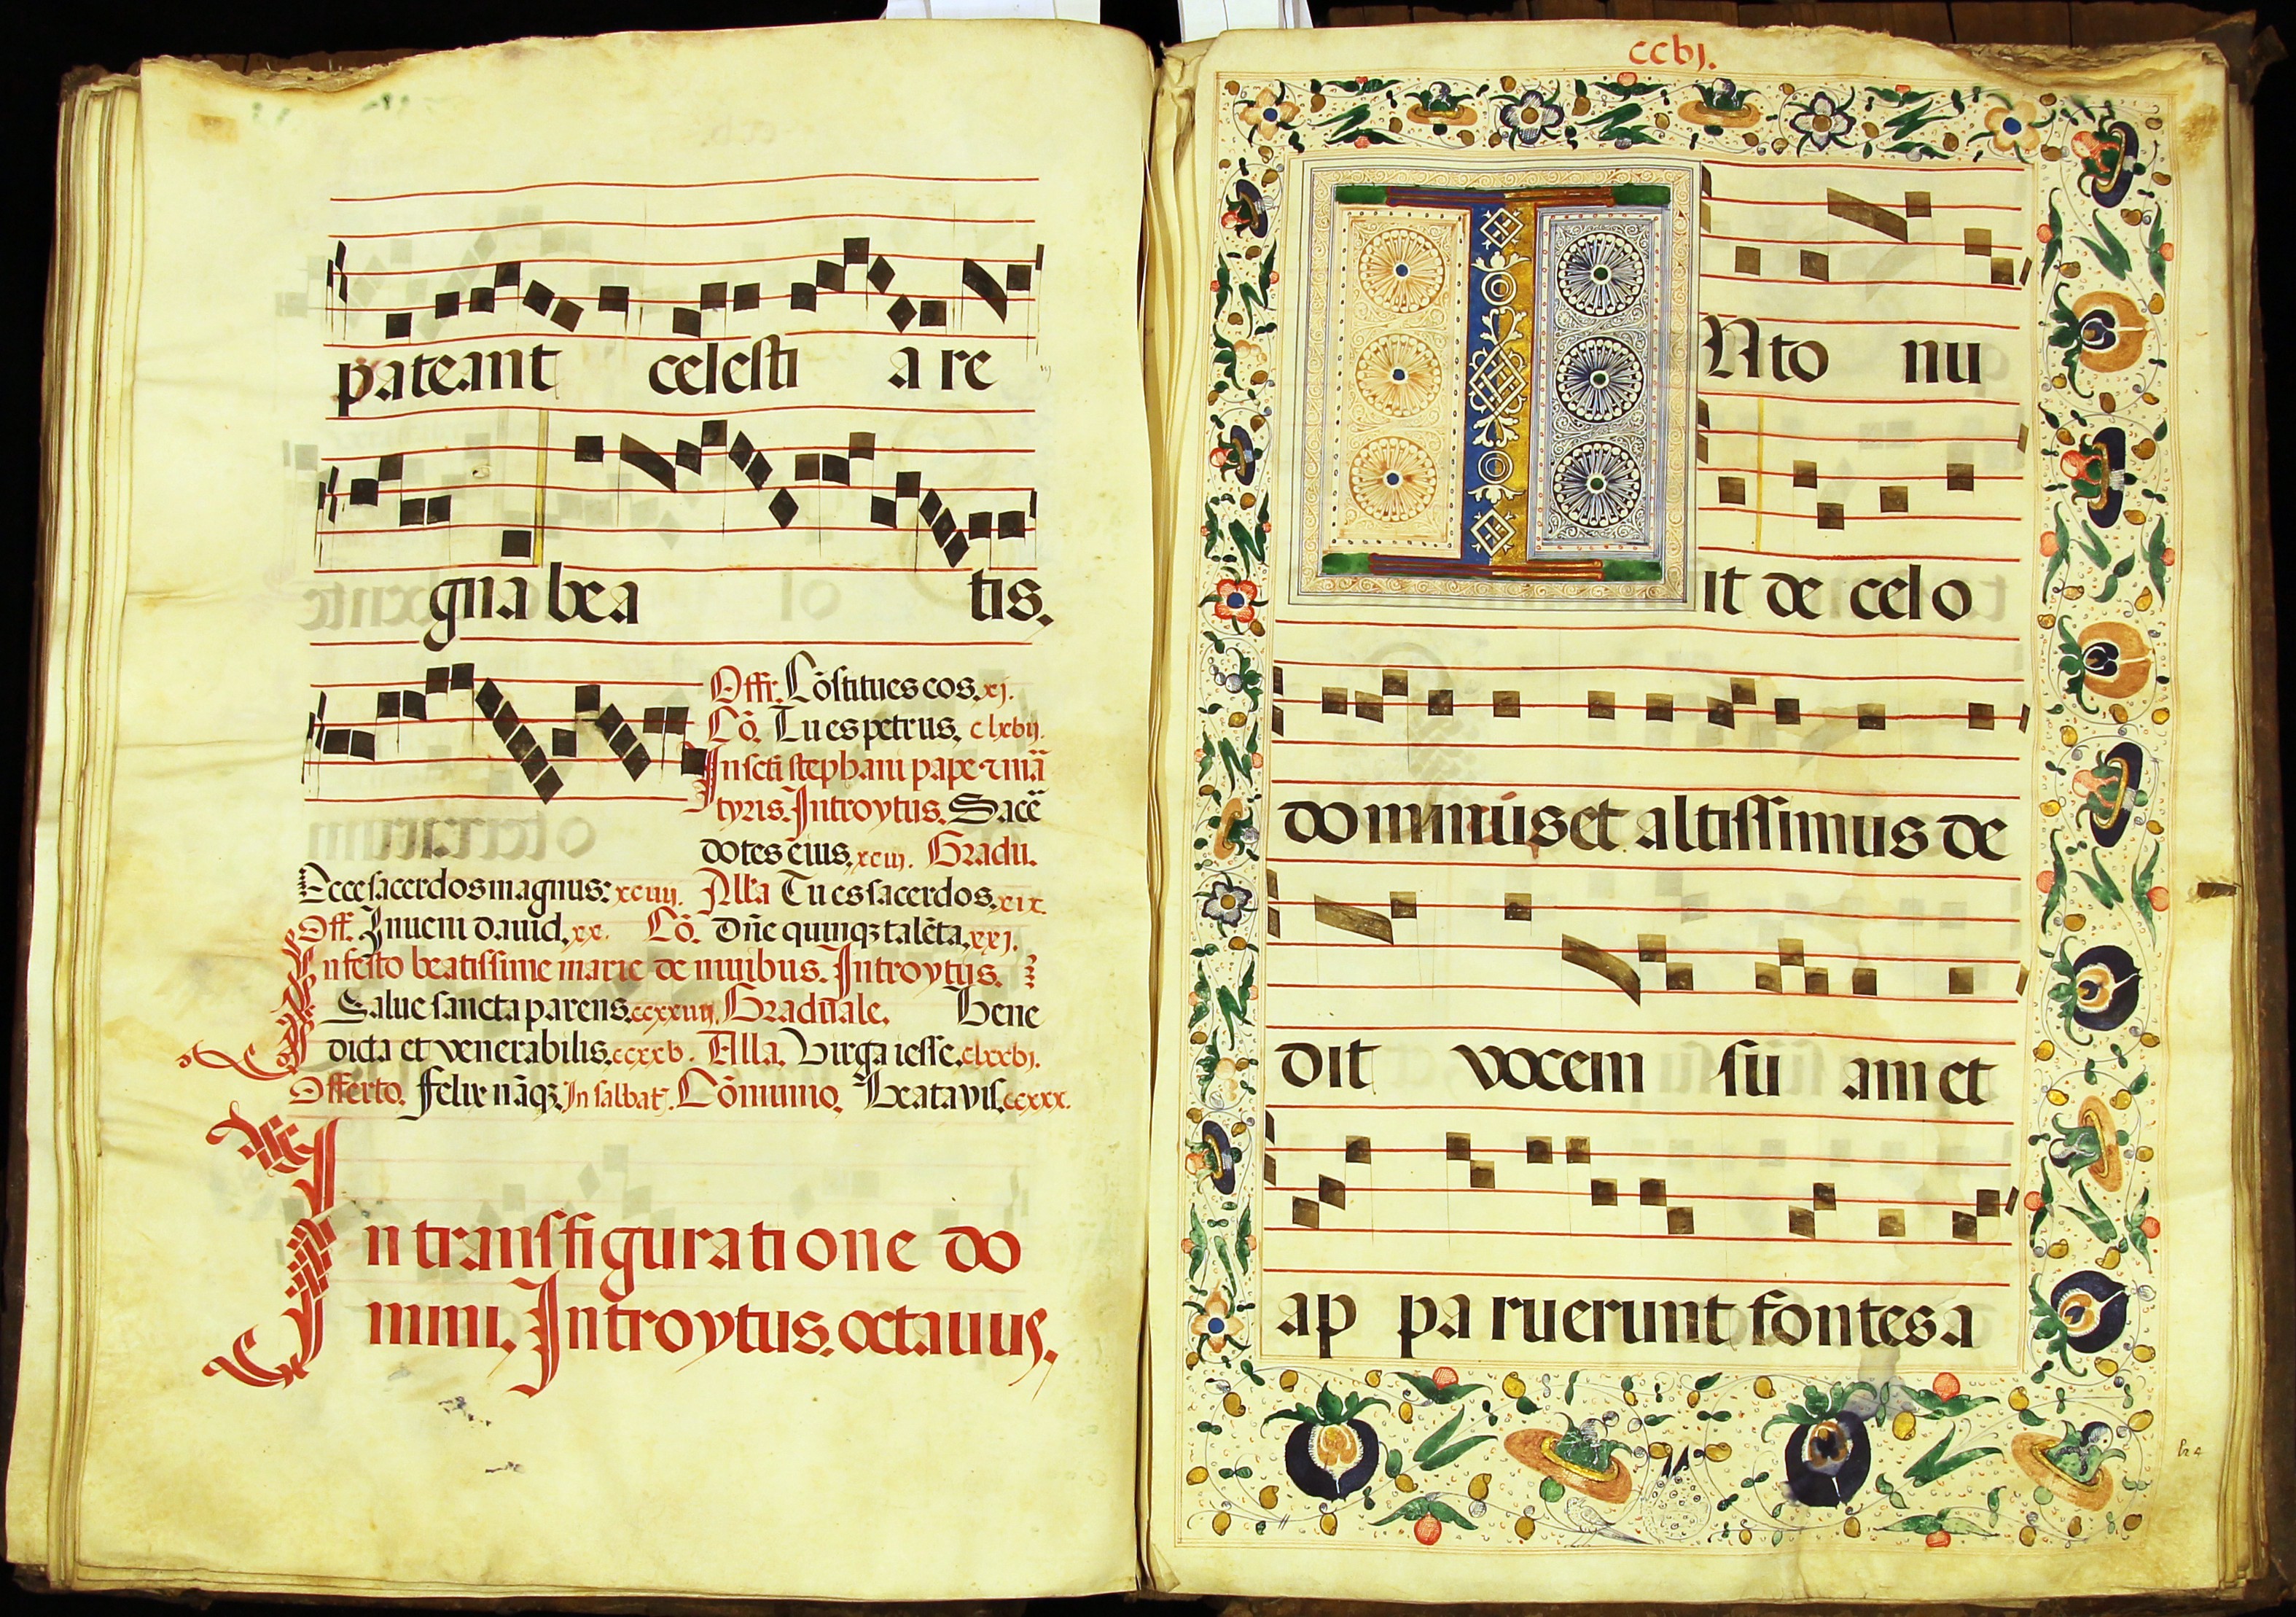 pateant celesti a re
gna bea tis.
Offr. Cōstitues eos. xj.
Cō. Tu es petrus. clxbij.
In scti stephani pape ⁊ mā
tyris. Introytus. Sace
dotes eius. xciij. Gradu.
Ecce sacerdos magnus: xciiij. Alla Tu es sacerdos. xix.
Off. Inueni dauid. xx. Cō. Dn̄e quinqꝫ talēta. xxj.
In festo beatissime marie de niuibus. Introytus.
Salue sancta parens. ccxxiiij. Graduale. Bene
dicta et venerabilis. ccxxb. Alla. Virga iesse. clxxbj.
Offerto. felix nāqꝫ. In sabbat. Cōmunio. Beata vis. ccxxx.
In transfiguratione do
mini. Introytus. octauus.
ccbj.
INto nu
it de celo
dominus et altissimus de
dit vocem su am et
ap pa ruerunt fontes a